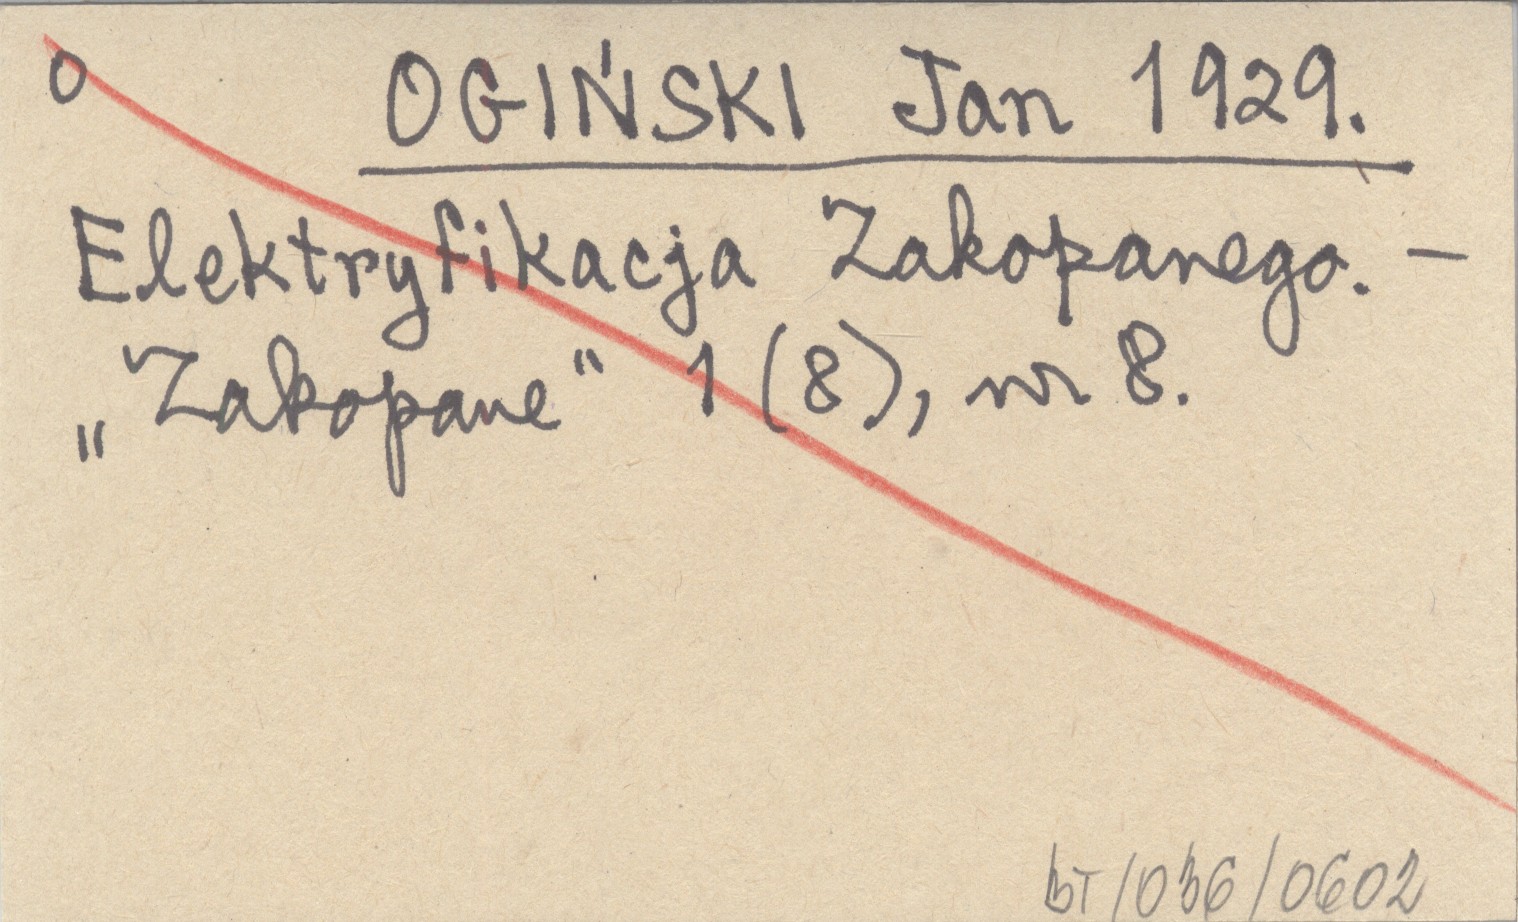 O
OGIŃSKI Jan 1929.
Elektryfikacja Zakopanego. —
„Zakopane" 1 (8), nr 8.
BT/036/0602